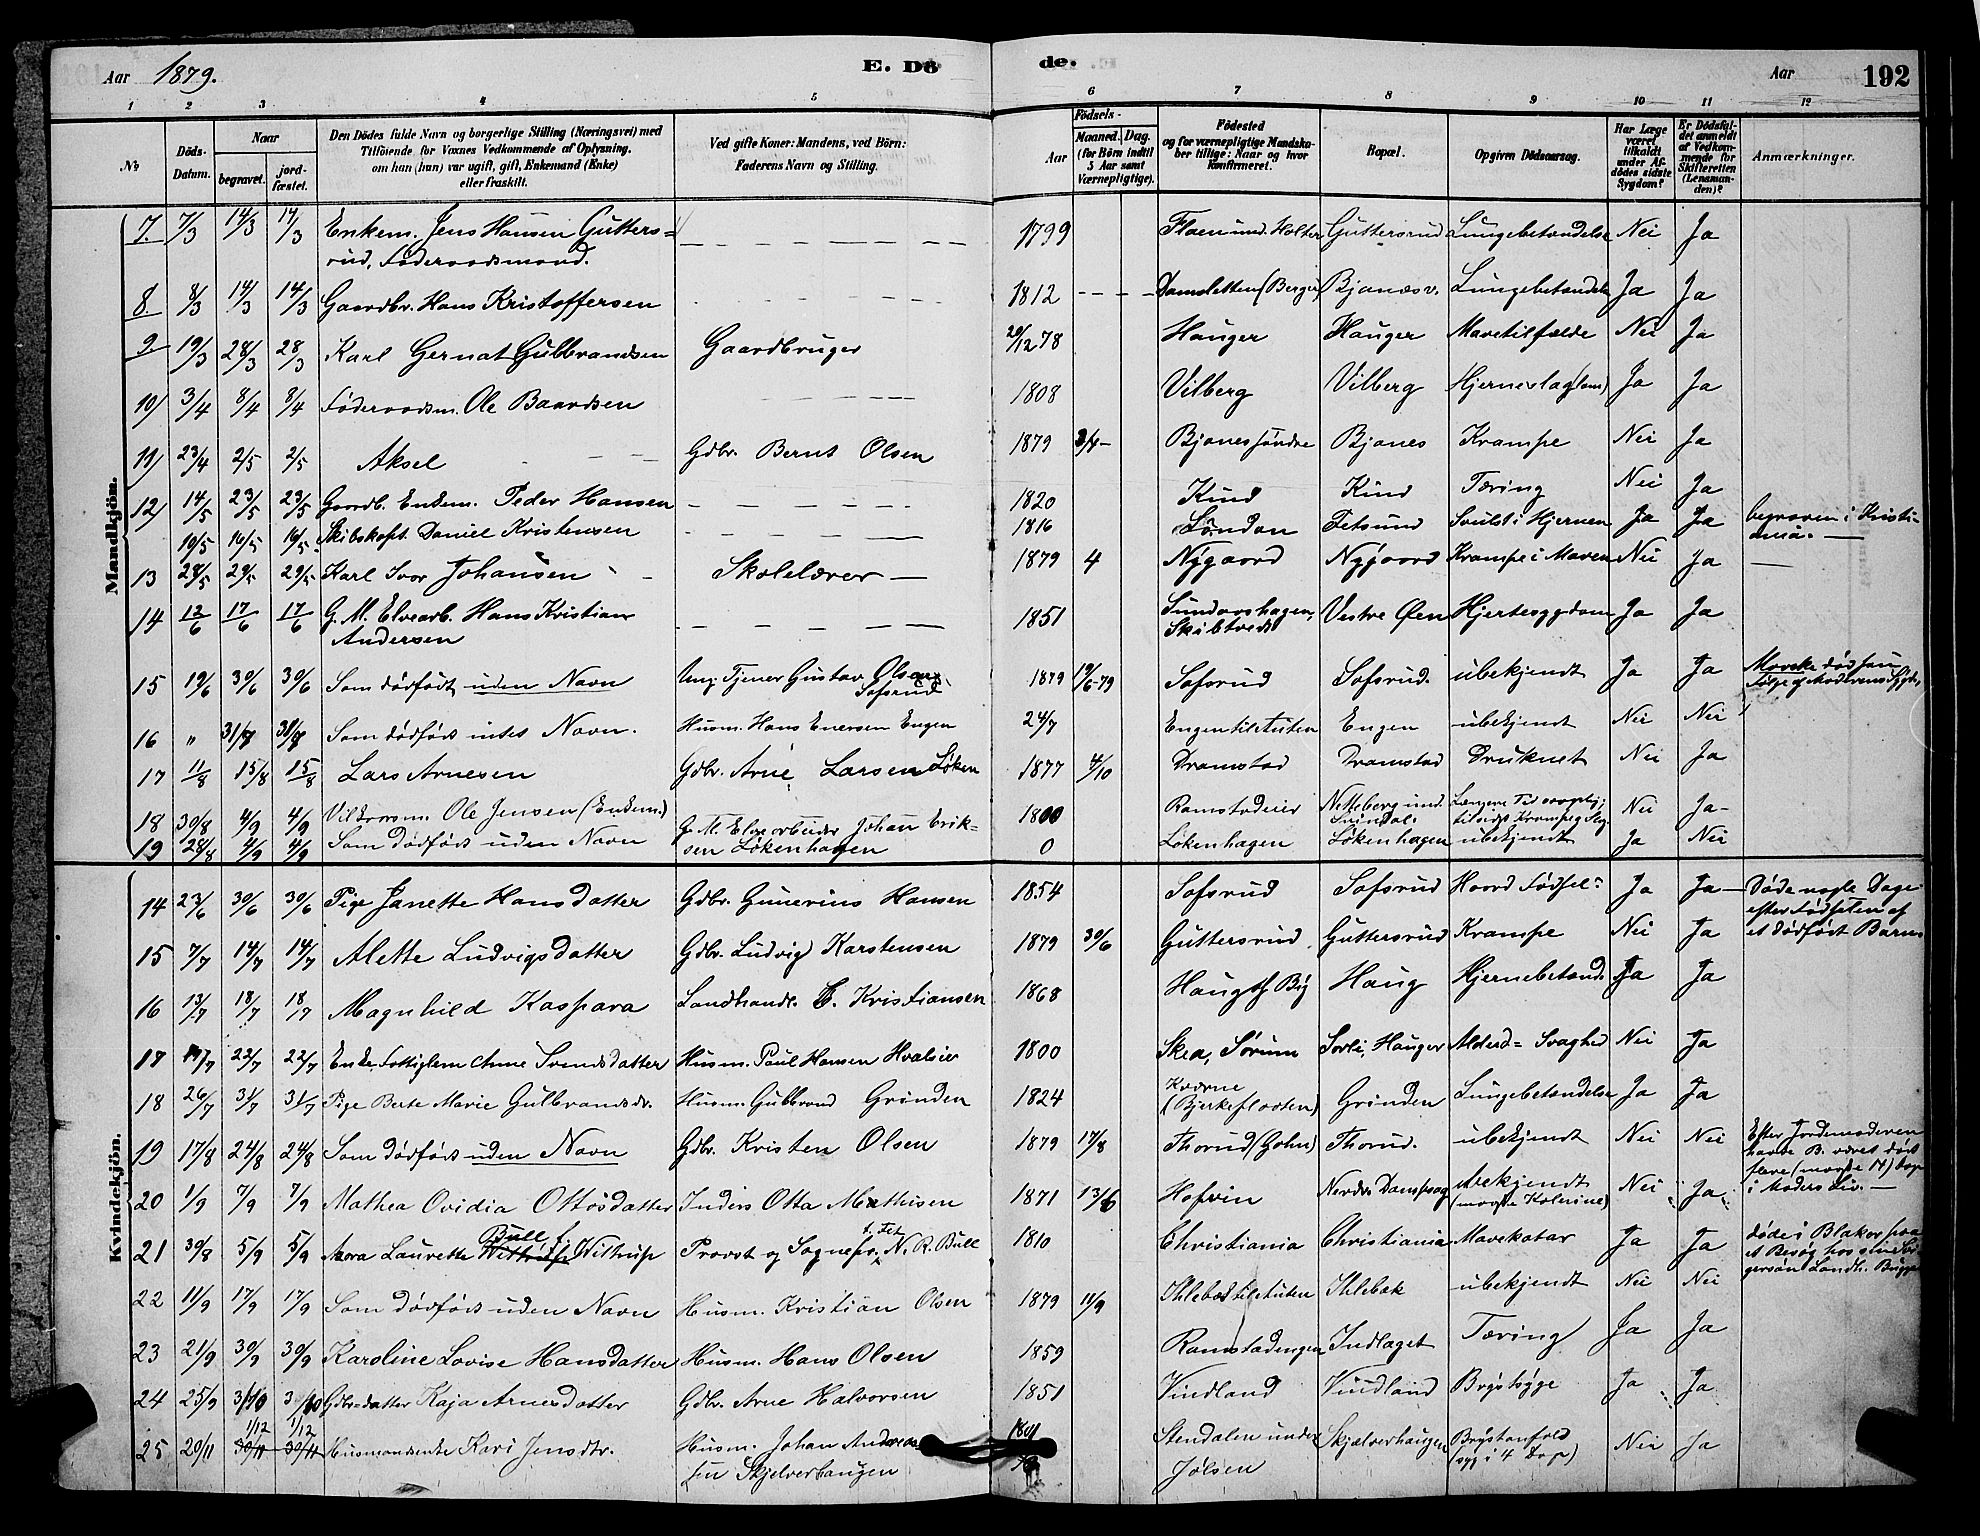 Aar 1879. E. Dö de. Aar 192
1 2 3 4 5 6 7 8 9 10 11 12
№ Döds-Datum. Naar begravet. jord-fæstet. Den Dödes fulde Navn og borgerlige Stilling (Næringsvei) med Tilföiende for Voxnes Vedkommende af Oplysning, om han (hun) var ugift, gift, Enkemand (Enke) eller fraskilt. Ved gifte Koner: Mandens, ved Börn: Faderens Navn og Stilling. Födsels- Aar Maaned. Dag. (for Börn indtil 5 Aar samt Værnepligtige). Födested og for værnepligtige Mandskaber tillige: Naar og hvor Konfirmeret. Bopæl. Opgiven Dödsaarsag. Har Læge været tilkaldt under Afdödes sidste Sygdom? Er Dödsfaldet anmeldt af Vedkommende for Skifteretten (Lensmanden)? Anmærkninger.
Mandkjön.
7. 7/3 14/3 14/3 Enkem. Jens Hansen Gutters= 1799 Floen und. Holter Guttersrud Lungebetændelse Nei Ja
rud, Föderaadsmand.
8. 8/3 14/3 14/3 Gaardbr. Hans Kristoffersen 1812 Damsletten (Berger) Bjanæsv. Lungebetændelse Ja Ja
9. 19/3 28/3 28/3 Karl Gernat Gulbrandsen Gaardbruger 20/12 78 Hauger Hauger Mavetilfælde Nei Ja
10/ 3/4 8/4 8/4 Föderaadsm. Ole Baardsen 1808 Vilberg Vilberg Hjerneslag (lam) Ja Ja
11/ 23/4 2/5 2/5 Aksel Gdbr. Bernt Olsen 1879 Bjanes söndre Bjanes Krampe Nei Ja
12/ 14/5 23/5 23/5 Gaardb. Enkem. Peder Hansen 1820 Kind Kind Tæring Nei Ja
10/5 16/5 16/5 Skibskapt. Daniel Kristensen 1816 Löndon Fetsund Svulst i Hjernen Ja Ja begraven i Kristi-
ania.
13 28/5 29/5 29/5 Karl Ivar Johansen Skolelærer 1879 4 Nygaard Nygaard Krampe i Maven Nei Ja
14 12/6 17/6 17/6 G. M. Elvearb. Hans Kristian 1851 Sundarshagen, Vestre Öien Hjertesygdom Ja Ja
Andersen Skibtvedt
15 19/6 30/6 30/6 Som dödfödt uden Navn Ung. Tjener Gustav Olsen 1879 19/6-79 Sofsrud Sofsrud. ubekjendt Ja Ja Maaske död som
Sofsrud Fölge af Moderens Sygd.
16 " 31/7 31/7 Som dödfödt intet Navn. Husm. Hans Enersen Engen 24/7 Engen til Austen Engen ubekjendt Nei Nei
17 11/8 15/8 15/8 Lars Arnesen Gdbr. Arne Larsen Löken 1877 4/10 Dramstad Dramstad Druknet Nei Ja
18 30/8 4/9 4/9 Vilkaarsm. Ole Jensen (Enkem.) 1800 Ramstadeier Netteberg und. Længere Tid
19 28/8 4/9 4/9 Som dödfödt uden Navn G. M. Elvearbeider Johan Erik= 0 Lökenhagen Lökenhagen ubekjendt Ja Nei
sen Lökenhagen
Kvindekjön.
14 23/6 30/6 30/6 Pige Janette Hansdatter Gdbr. Gunerius Hansen 1854 Sofsrud Sofsrud Haard Födsel Ja Ja Döde nogle Dage
efter Födselen af
et dödfödt Barn
15 7/7 14/7 14/7 Alette Ludvigsdatter Gdbr. Ludvig Karstensen 1879 30/6 Guttersrud Guttersrud Krampe Nei Ja
16 13/7 18/7 18/7 Magnhild Kaspara Landhandl. E. Kristiansen 1868 Haug Haug Hjernebetænd. Ja Ja
17 22/7 22/7 Enke, Fattiglem Anne Svendsdatter Husm. Paul Hansen Hvalsier 1800 Skea, Sörum Sorli, Hauger Alderd= Svaghed Nei Ja
18 26/7 31/7 31/7 Pige Berte Marie Gulbrandsdr. Husm. Gulbrand Grinden 1824 Kværne Grinden Lungebetændelse Ja Ja
(Bjerkefloten)
19 17/8 24/8 24/8 Som dödfödt uden Navn Gdbr. Kristen Olsen 1879 17/8 Thorud Thorud. ubekjendt Nei Nei Efter Jordemoderen
havde B. været död
flere (maaske 14) Dage
i Moders Liv.
20 1/9 7/9 7/9 Mathea Ovidia Ottosdatter Inders Otto Mathisen 1871 13/6 Hofvin Nerdr. Dampsag ubekjendt Nei Ja
(maaske Kolerine)
21 30/8 5/9 5/9 Mora Laurette Bull f. Wiltrup Provst og Sognepr. t. Fet N. R. Bull 1810 Christiania Christiania Mavekatar Ja Ja döde i Blaker paa
et Besög hos sin Svi-
gersön Landh.
22 11/9 17/9 17/9 Som dödfödt uden Navn Husm. Kristian Olsen 1879 11/9 Ihlebæk til Austen Ihlebæk ubekjendt Nei Nei
23 21/9 30/9 30/9 Karoline Lovise Hansdatter Husm. Hans Olsen 1859 Ramstadengen Indlaget Tæring Ja Ja
24 25/9 3/10 3/10 Gdbrs=datter Kaja Arnesdatter Gdbr. Arne Halvorsen 1851 Vindland Vindland Brystsyge Ja Ja
1/12 1/12
25 20/11 30/11 30/11 Husmandsenke Kari Jensdtr. Husm. Johan Andreas Stendalen under Skjælverhaugen Brystonfald Nei Ja
Skjelverhaugen Jölsen (syg i 4 Dage)